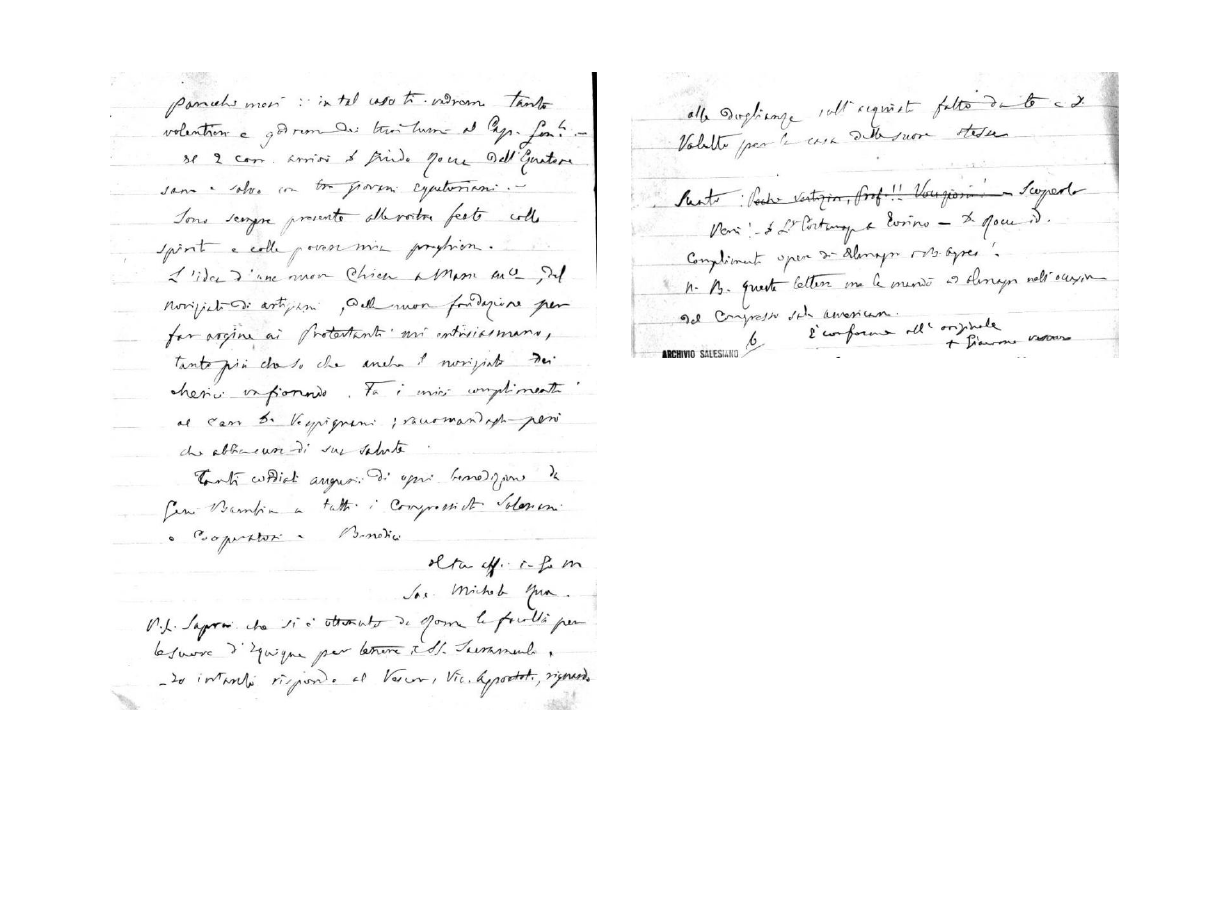 parecchi mesi: in tal caso ti vedremo tanto
volentieri e godremo dei tuoi lumi al Cap. Gen.le –
Il 2 corr. arrivò D. Rocca dell'Equatore
sano e salvo con tre giovani equatoriani. –
Sono sempre presente alle vostre feste collo
spirito e colle povere mie preghiere.
L'idea d'una nuova Chiesa a Maria Au.ce, del
noviziato di artigiani, della nuova fondazione per
far argine ai Protestanti mi entusiasmano,
tanto più che so che anche il noviziato dei
chierici va fiorendo. Fa i miei complimenti
al caro D. Vespignani; raccomandagli però
che abbia cura di sua salute.
Tanti cordiali auguri di ogni benedizione da
Gesù Bambino a tutti i Congressisti Salesiani
e Cooperatori e Benedici
il tuo aff. in G. e M
Sac. Michele Rua.
P.S. Saprai che si è ottenuto da Roma la facoltà per
le Suore d'Iquique per tenere il SS. Sacramento.
– Io intanto rispondo al Vescovo, Vic. Apostol., riguardo
alle doglianze sull'acquisto fatto da te e D.
Valetto per la casa delle suore stesse
Poche vertigini, Prof.!! Scoperto
a Torino – D. Rocca id.
Complimenti opera di Almagro e B. Ayres!
N. B. questa lettera me la mandò ad Almagro nell'occasione
del Congresso Sal. americano.
È conforme all'originale
+ Giacomo
ARCHIVIO SALESIANO 6